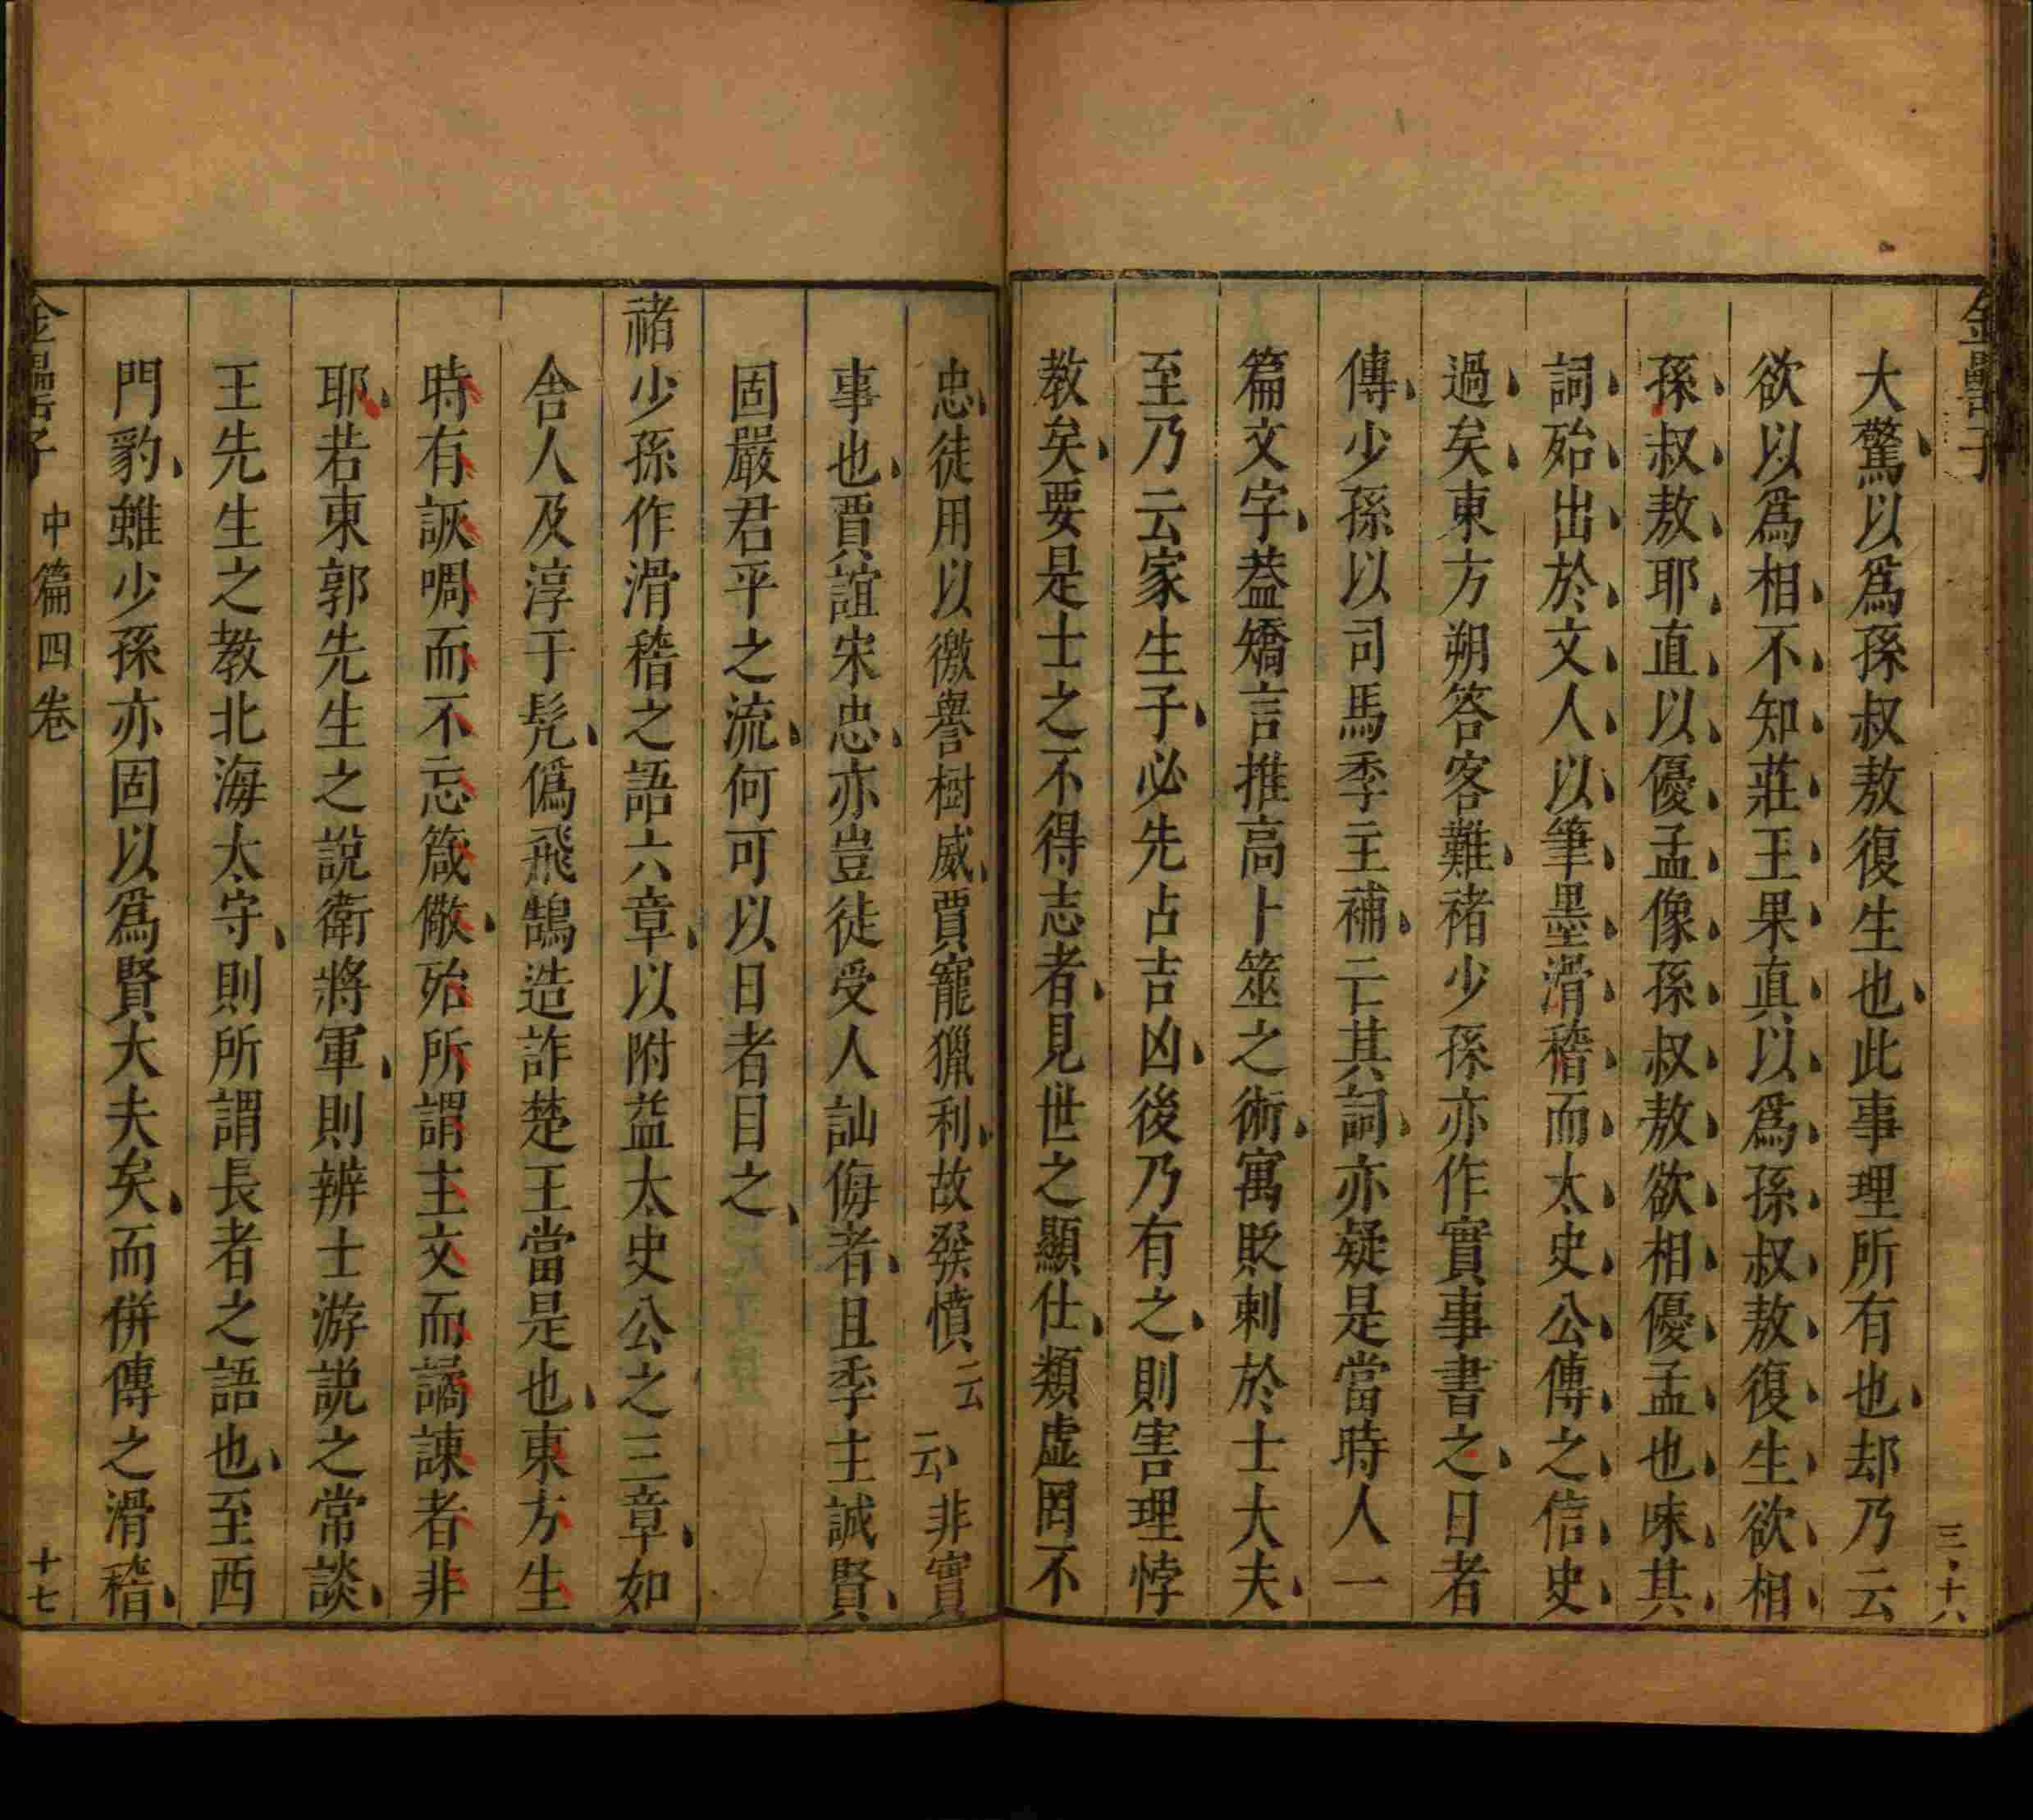 大驚以為孫叔敖復生也此事理所有也却乃云
欲以為相不知莊王果真以為孫叔敖復生欲相
孫叔敖耶直以優孟像孫叔敖欲相優孟也味其
詞殆出於文人以筆墨滑稽而太史公傳之信史
過矣東方朔答客難褚少孫亦作實事書之日者
傳少孫以司馬季主補亡其詞亦疑是當時人一
篇文字葢矯言推高卜筮之術寓貶刺於士大夫
至乃云家生子必先占吉凶後乃有之則害理悖
教矣要是士之不得志者見世之顯仕類虛罔不
三十八
忠徒用以徼譽樹威賈寵獵利故發憤云云非實
事也賈誼宋忠亦豈徒受人訕侮者且季主誠賢
固嚴君平之流何可以日者目之
褚少孫作滑稽之語六章以附益太史公之三章如
舍人及淳于髡僞飛鵠造詐楚王當是也東方生
時有詼啁而不忘箴儆殆所謂主文而譎諫者非
耶若東郭先生之說衛將軍則辨士游説之常談
王先生之教北海太守則所謂長者之語也至西
門豹雖少孫亦固以為賢大夫矣而併傳之滑稽
中篇四卷
十七